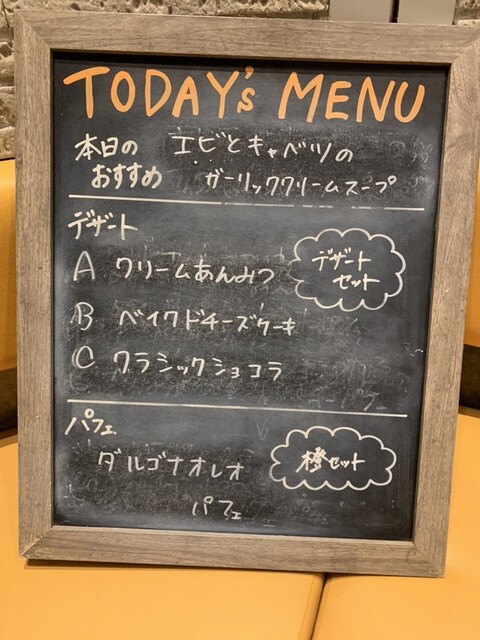 TODAY's MENU
本日の
おすすめ
エビとキャベツの
ガーリッククリームスープ
デザート
A クリームあんみつ
B ベイクドチーズケーキ
C クラシックショコラ
デザート
セット
パフェ
ダルゴナオレオ
パフェ
橙セット